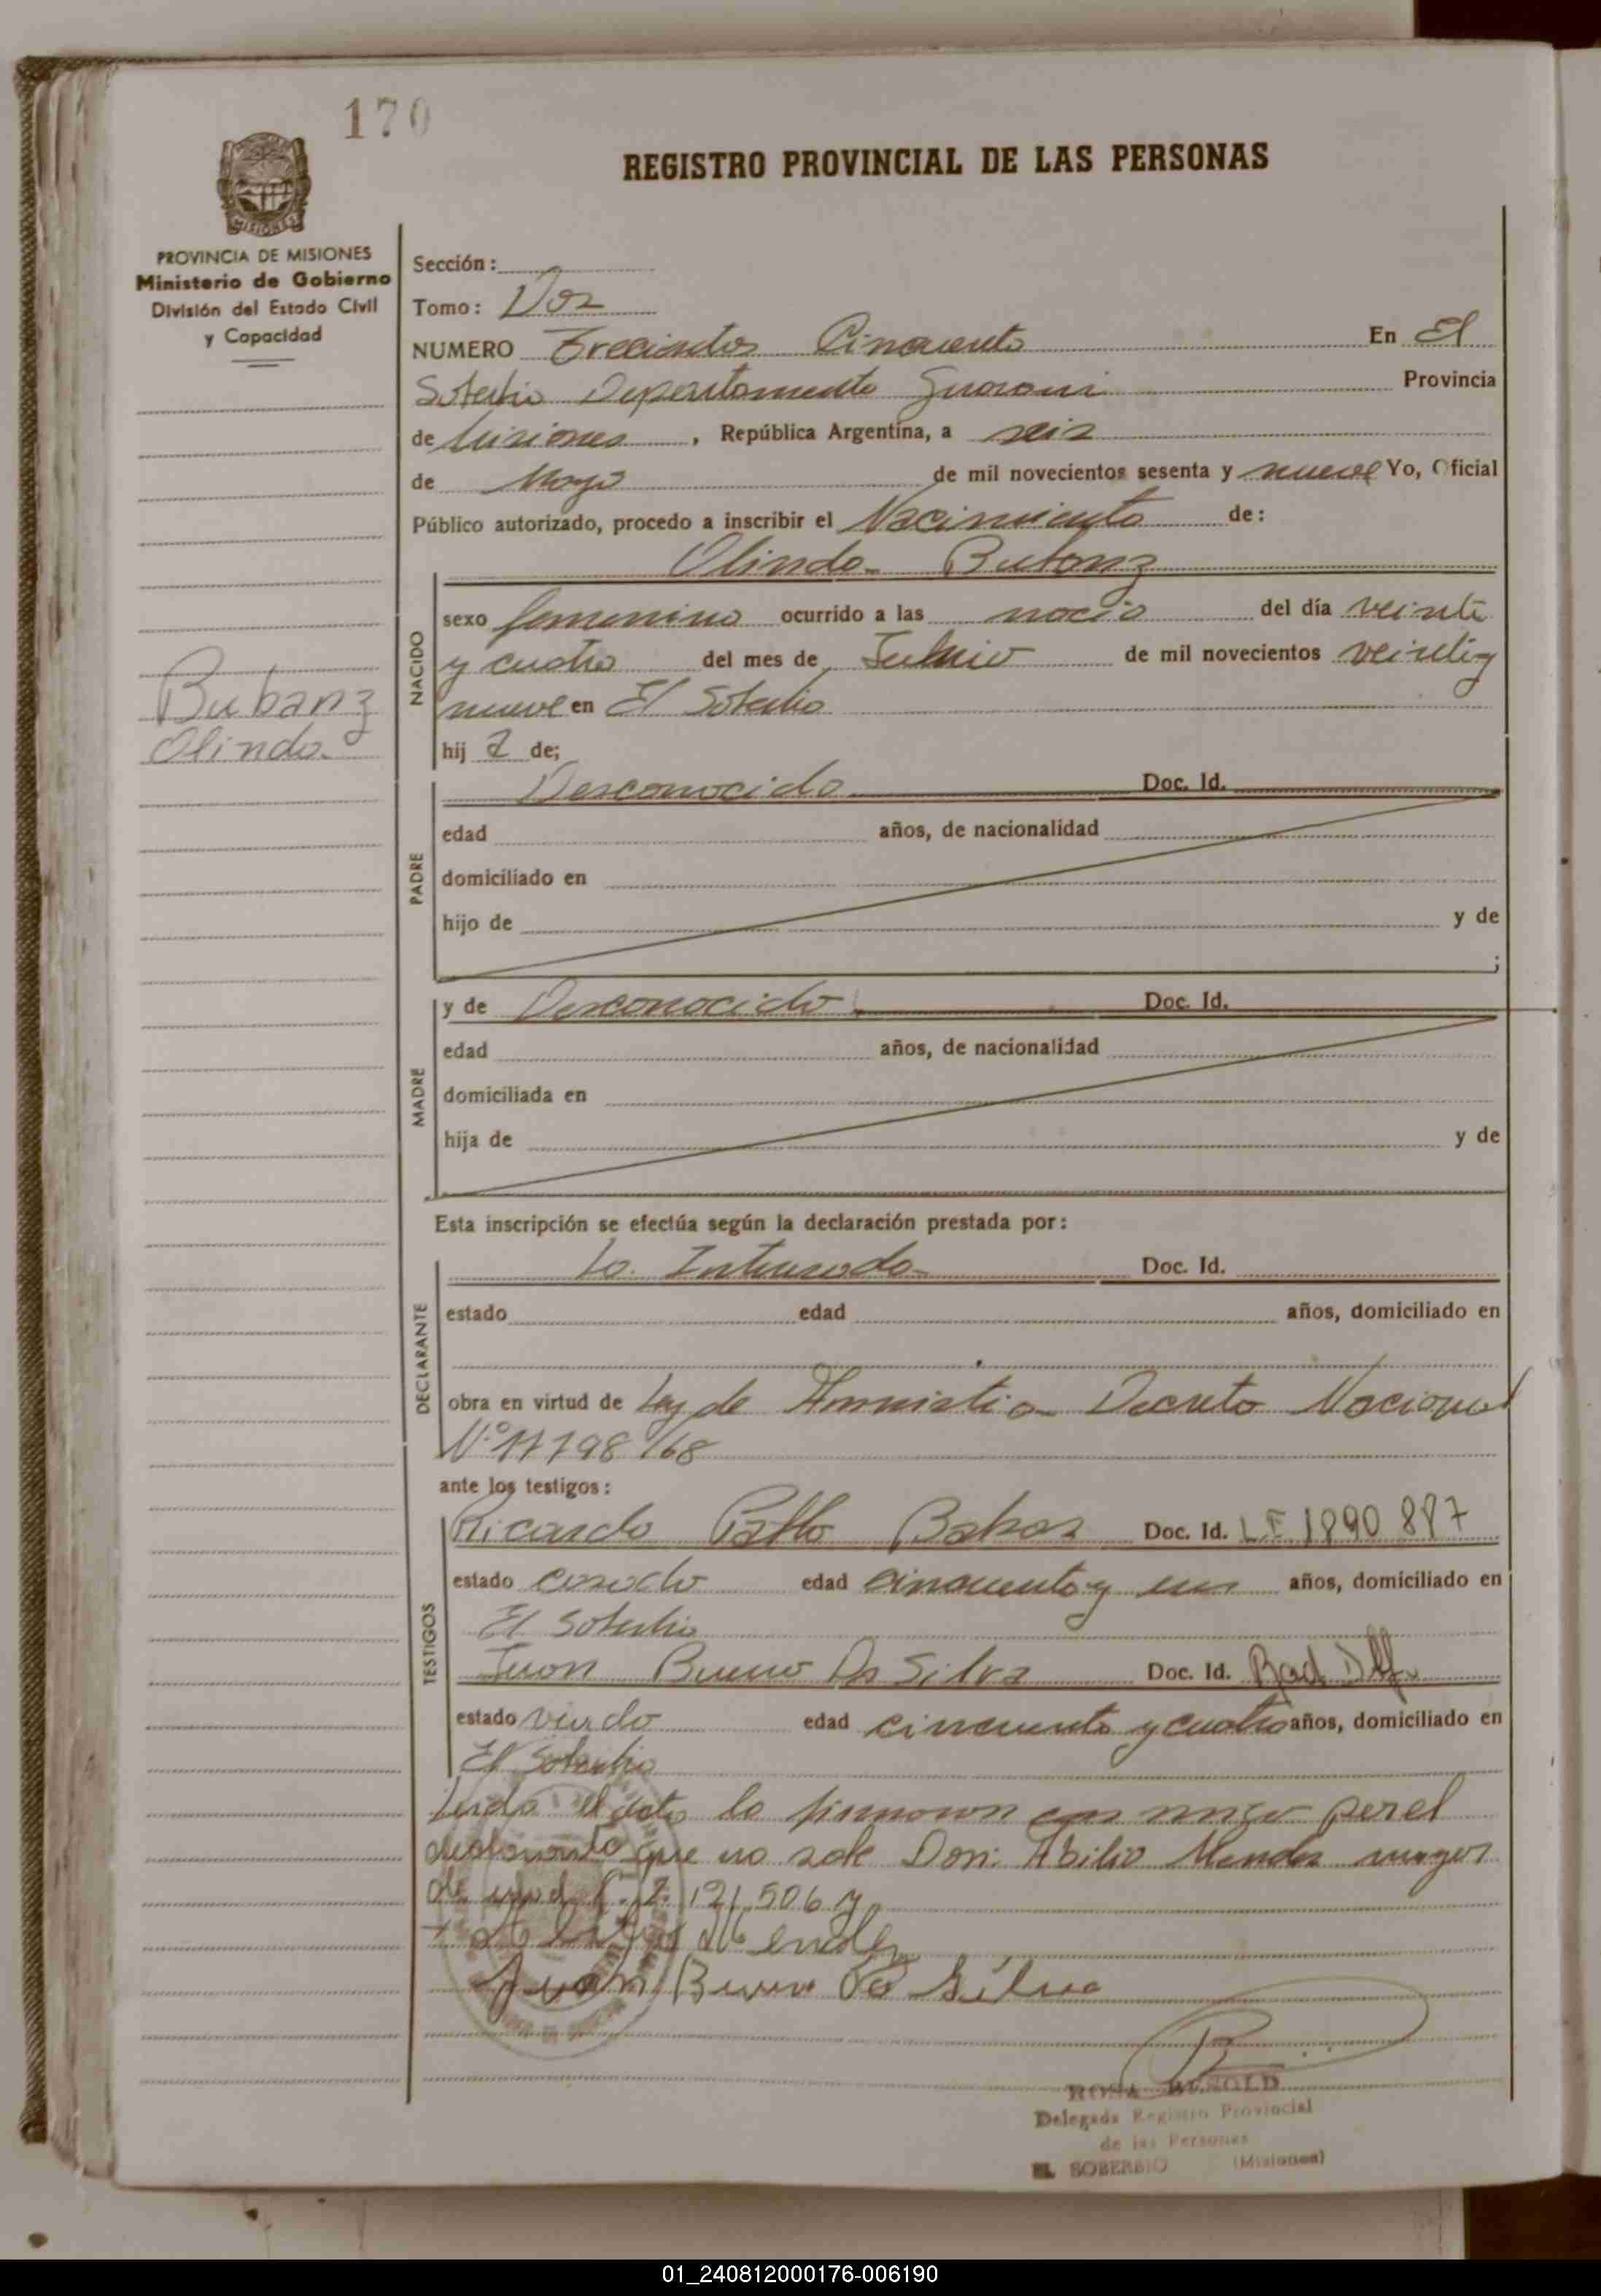 170
REGISTRO PROVINCIAL DE LAS PERSONAS
MISIONES
PROVINCIA DE MISIONES
Ministerio de Gobierno
División del Estado Civil
y Capacidad
Sección:
Tomo: Dos
NUMERO Treciento Cincuenta En El
Soberbio Departamento Guarani Provincia
de Misiones, República Argentina, a seis
de Mayo de mil novecientos sesenta y nueve Yo, Oficial
Público autorizado, procedo a inscribir el Nacimiento de:
Olinda Bubanz
NACIDO
sexo femenino ocurrido a las nocio del día veinte
y cuatro del mes de Julio de mil novecientos veinti y
nueve en El Soberbio
Bubanz
Olinda
hij a de;
PADRE
Desconocido Doc. Id.
edad años, de nacionalidad
domiciliado en
hijo de y de
;
MADRE
y de Desconocido Doc. Id.
edad años, de nacionalidad
domiciliada en
hija de y de
Esta inscripción se efectúa según la declaración prestada por:
DECLARANTE
La Interesada Doc. Id.
estado edad años, domiciliado en
obra en virtud de Ley de Amnistia Decreto Nacional
Nº 17798/68
ante los testigos:
TESTIGOS
Ricardo Pablo Doc. Id. LE 1890 887
estado casado edad cincuenta y un años, domiciliado en
El Soberbio
Juan Bueno Da Silva Doc. Id.
estado viudo edad cincuenta y cuatro años, domiciliado en
El Soberbio
Leido el acta la firmaron con migo por el
que no sabe Don: Abilio Mendes mayor
de edad C.I. 121.506 y
Juan Bueno Da Silva
ROSA
Delegada Registro Provincial
de las Personas
EL SOBERBIO (Misiones)
01_240812000176-006190